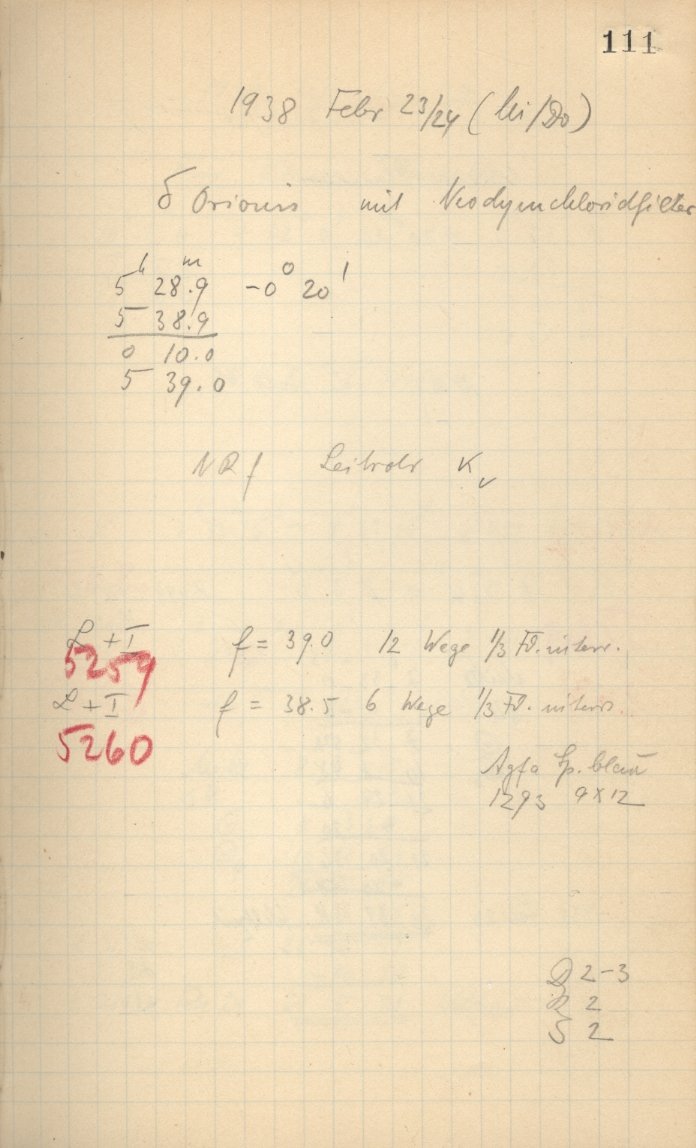 111
1938 Febr 23/24 (
δ Orionis mit Neodymchloridfilter
5h 28.9m -0° 20'
5 38.9
0 10.0
5 39.0
Leitrohr K
L + I f = 39.0 12 Wege 1/3 Fd.
5259
L + I f = 38.5 6 Wege 1/3 Fd.
5260
Agfa Sp. blau
1293 9x12
D 2-3
R 2
S 2